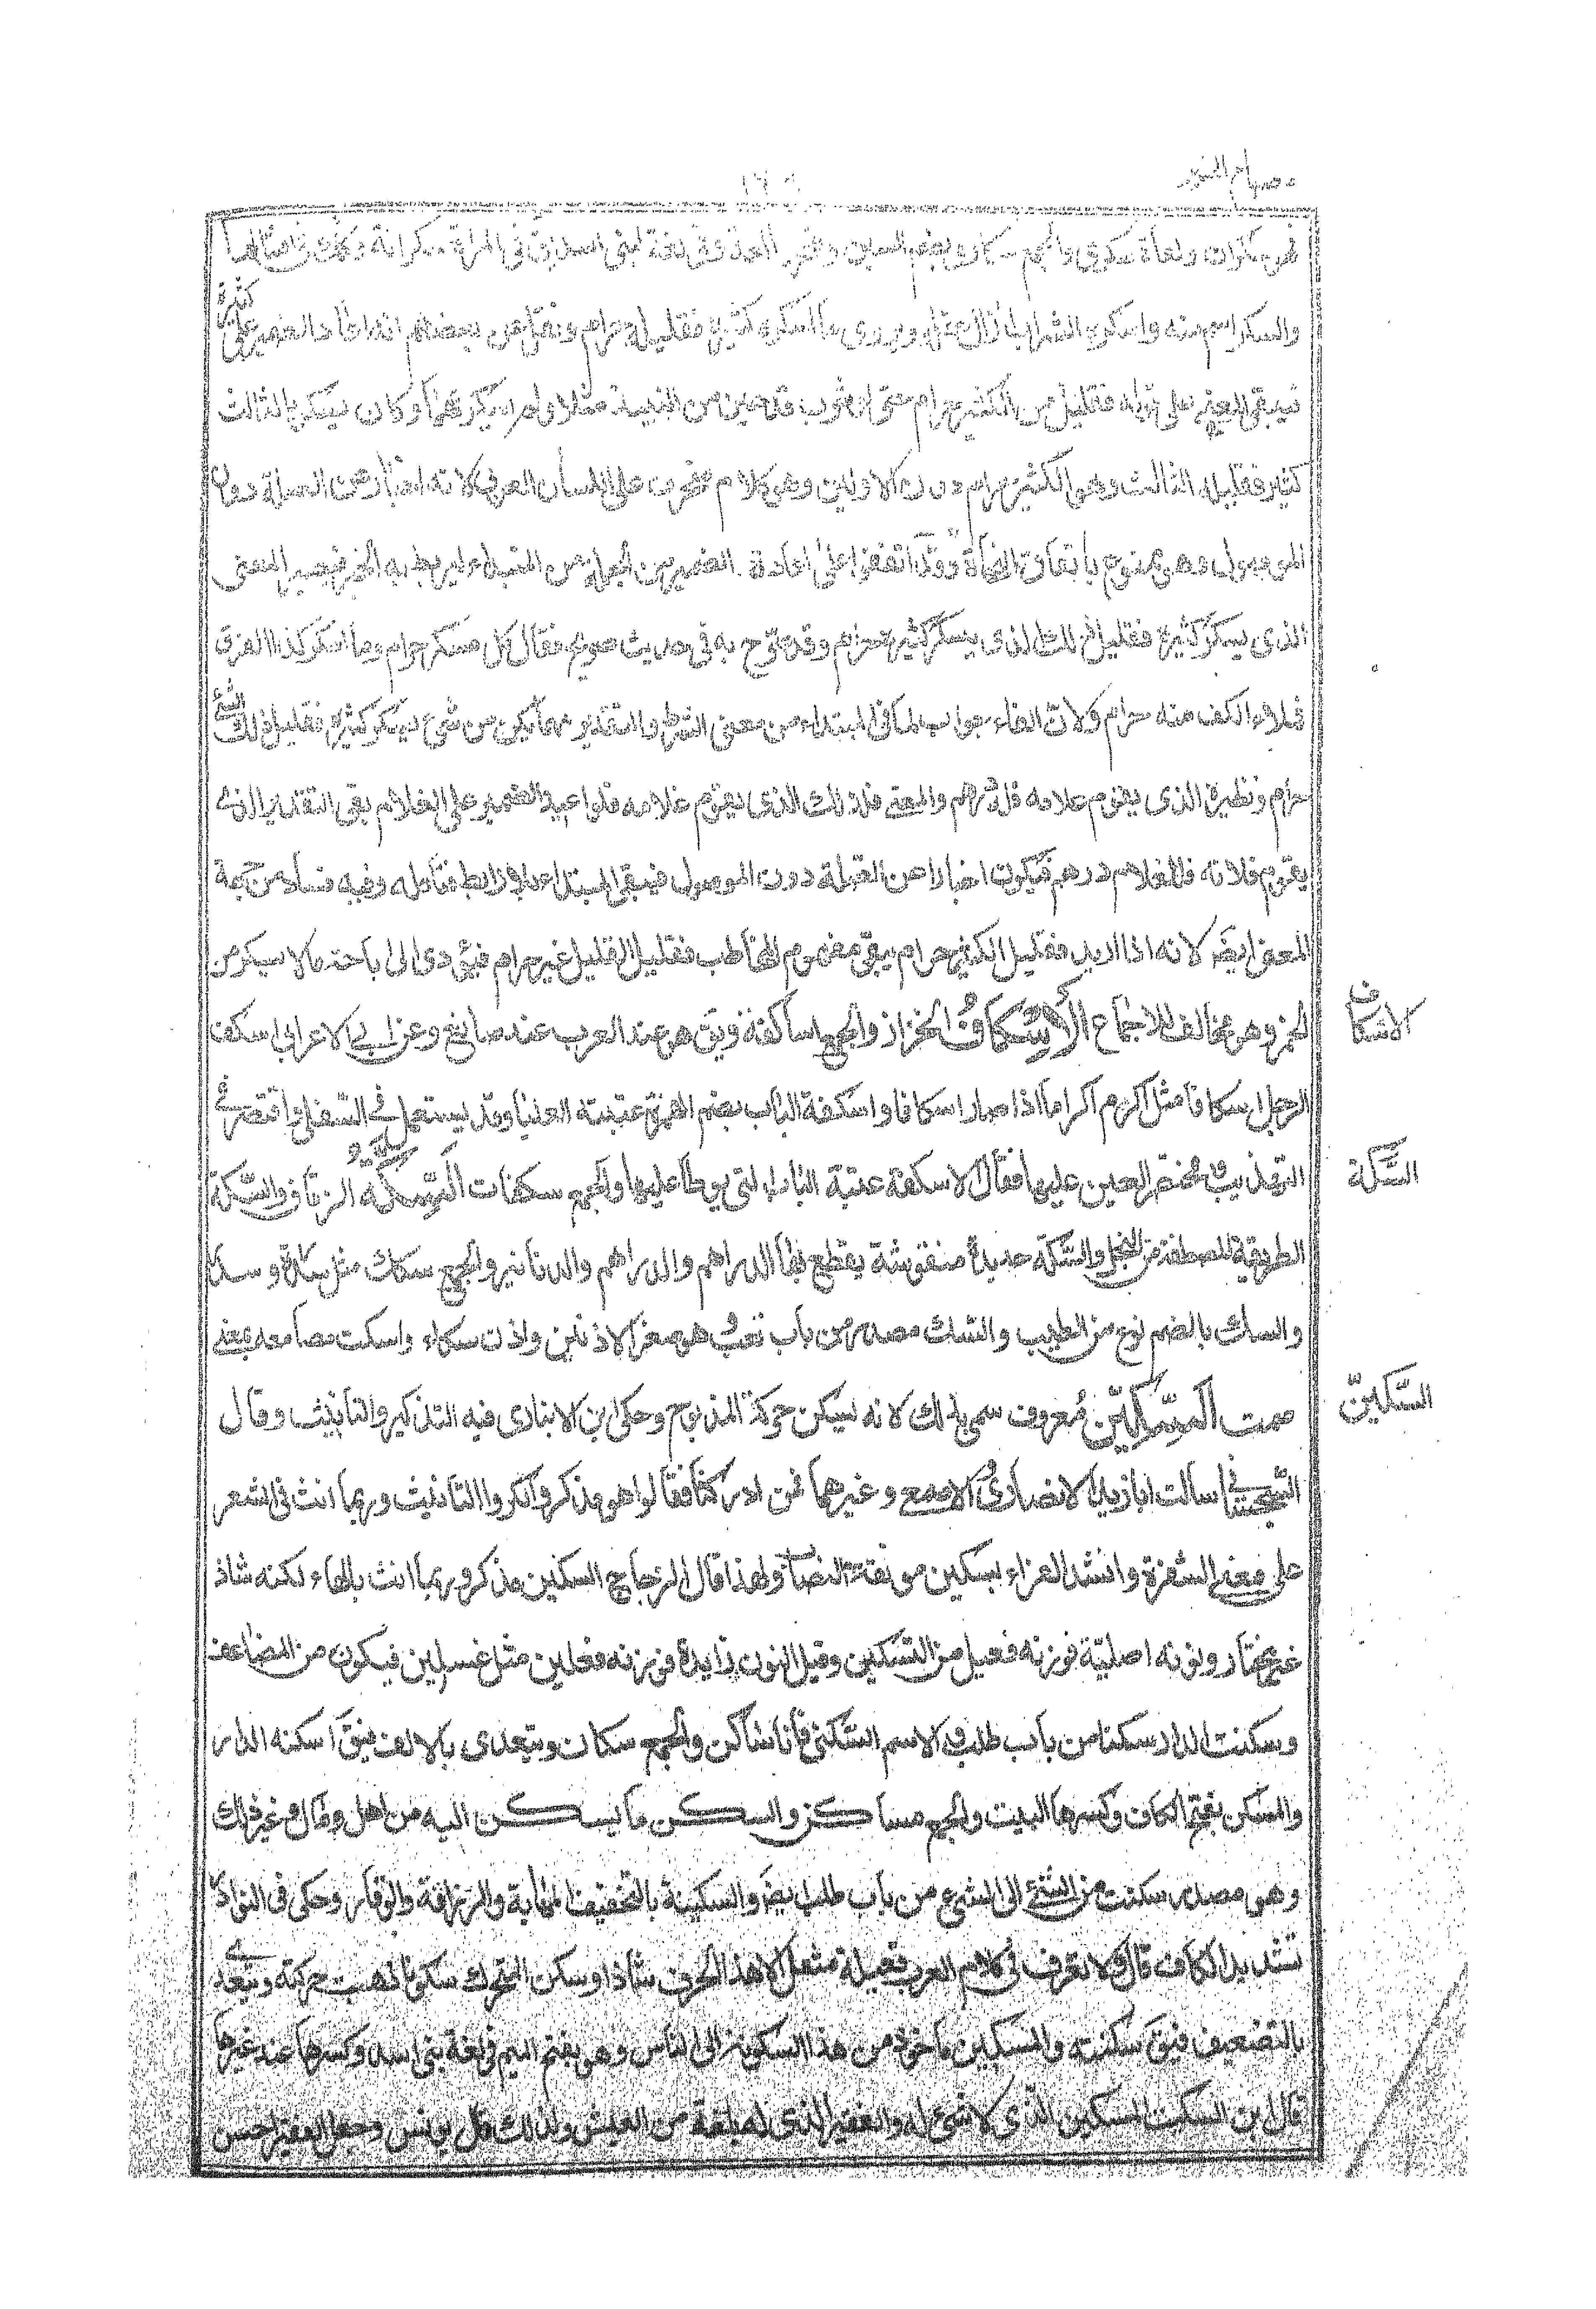 مصباح المنير
فهو سكران وامرأة سكرى والجمع سكارى بضم السين وفتحها لغة وفي لغة لبنى اسد يقال في المرأة سكرانة
والسكر اسم منه واسكره الشراب ازال عقله ويروى ما اسكر كثيره فقليله حرام ونقل عن بعضهم انه اعاد الضمير على كثيره
فيبقى المعنى على قوله فقليل من الكثير حرام حتى لو شرب قدحين من النبيذ مثلا ولم يسكر بهما وكان يسكر بالثالث
كثير فقليل الثالث وهو الكثير حرام دون الاولين وهو كلام منحرف على اللسان العربي لانه اخبار عن الصلة دون
الموصول وهو ممنوع باتفاق النحاة وقد اتفقوا على اعادة الضمير من الجملة من المبتداء ليربط به الخبر فيصير المعنى
الذى يسكر كثيره فقليل ذلك الذى يسكر كثيره حرام وقد صرح به في حديث فقال كل مسكر حرام وما اسكر كذا الفرق
فملاء الكف منه حرام ولان الفاء جواب لما في المبتداء من معنى الشرط والتقدير مهما يكن من شئ يسكر كثيره فقليل ذلك الشئ
حرام ونظيره الذى يقوم غلامه فله درهم والمعنى فلذلك الذى يقوم غلامه فلو اعيد الضمير على الغلام بقى التقدير الذى
يقوم غلامه فللغلام درهم فيكون اخبارا عن الصلة دون الموصول فيبقى المبتداء بلا رابط فتأمله وفيه فساد من جهة
المعنى ايضا لانه اذا اريد فقليل الكثير حرام يبقى مفهوم المخاطب فقليل القليل غير حرام فيؤدى الى اباحة مالا يسكر من
الخمر وهو مخالف للاجماع الاسكاف الخراز والجمع اساكفة ويق هو عند العرب عند صانع وعن ابي الاعرابي اسكف
الاسكاف
الرجل اسكافا مثل اكرم اكراما اذا صار اسكافا واسكفة الباب بضم الهمزة عتبته العليا وقد يستعمل في السفلى واقتصر في
التهذيب ومختصر العين عليها فقال الاسكفة عتبة الباب التى يوطأ عليها والجمع سكفات السكة الزقاق والسكة
السكة
الطريقة المصطفة من النخل والسكة حديدة منقوشة يقطع بها الدراهم والدراهم والدنانير والجمع سكك مثل سدرة وسدر
والسك بالضم نوع من الطيب والسك مصدر من باب تعب وهو صغر الاذنين واذن سكاء واسكت مصامعه بمعنى
صمت السكين معروف سمى بذلك لانه يسكن حركة المذبوح وحكى ابن الانبارى فيه التذكير والتأنيث وقال
السكين
السجستاني سالت ابا زيد الانصارى والاصمع وغيرهما ممن ادركنا فقالوا هو مذكر وانكروا التانيث وربما انث في الشعر
على معنى الشفرة وانشد الفراء بسكين موثقة النصاب ولهذا قال الزجاج السكين مذكر وربما انث بالهاء لكنه شاذ
غير مختار ونونه اصلية فوزنه فعيل من التسكين وقيل النون زايدة فوزنه فعلين مثل غسلين فيكون من المضاعف
وسكنت الدار سكنا من باب طلب والاسم السكنى فانا ساكن والجمع سكان ويتعدى بالالف فيق اسكنه الدار
والمسكن بفتح الكاف وكسرها البيت والجمع مساكن والسكن ما يسكن اليه من اهل ومال وغير ذلك
وهو مصدر سكنت من الشئ الى الشئ من باب طلب ايضا والسكينة بالتخفيف المهابة والرزانة والوقار وحكى في النوادر
تشديد الكاف قال ولا تعرف في كلام العرب فعيلة مثقل الا هذا الحرف شاذا وسكن المتحرك سكونا ذهبت حركته ويتعدى
بالتضعيف فيق سكنته والمسكين ماخوذ من هذا السكونه الى الناس وهو بفتح الميم في لغة بنى اسد وكسرها عند غيرها
قال ابن السكت المسكين الذى لا شئ له والفقير الذى له بلغة من العيش ولذلك قال يونس وجعل الفقير احسن